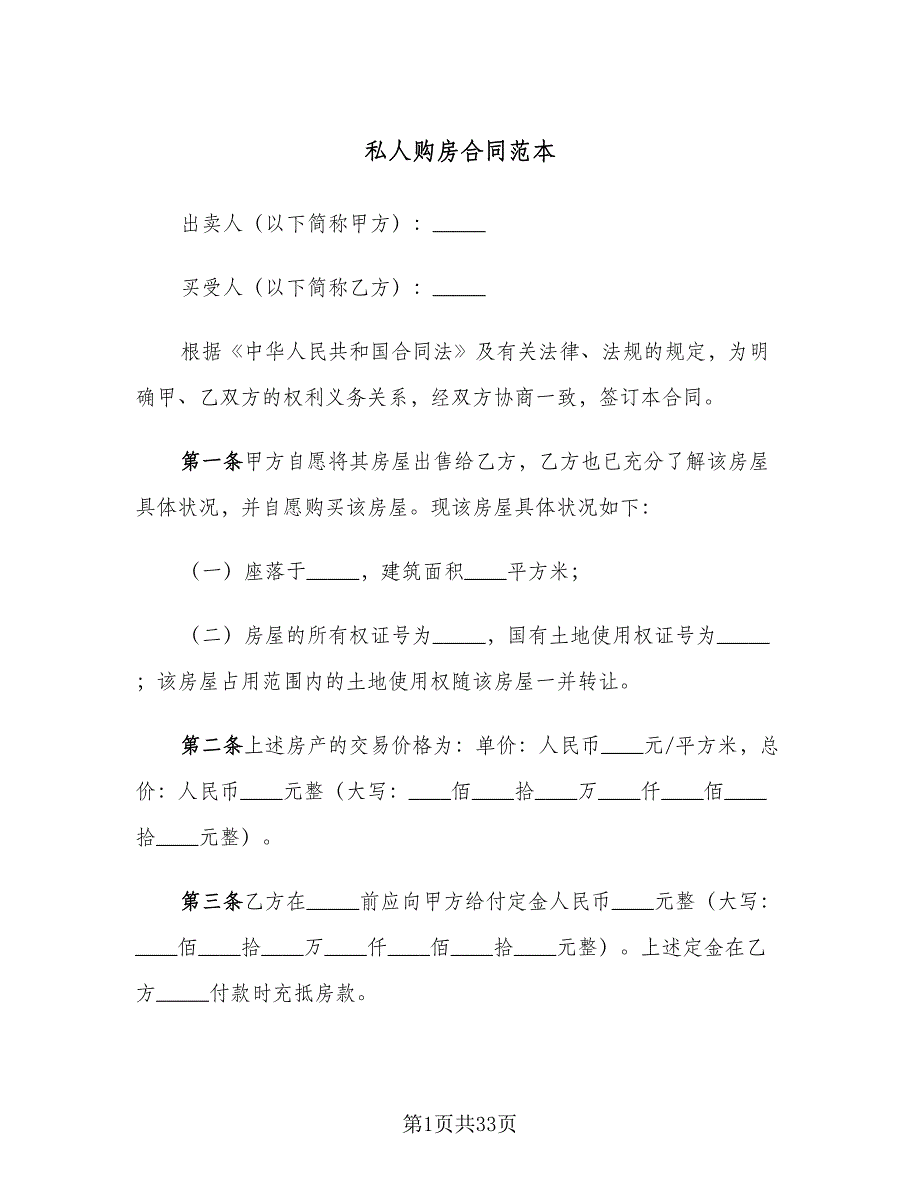 私人购房合同范本
出卖人（以下简称甲方）：_____
买受人（以下简称乙方）：_____
根据《中华人民共和国合同法》及有关法律、法规的规定，为明
确甲、乙双方的权利义务关系，经双方协商一致，签订本合同。
第一条甲方自愿将其房屋出售给乙方，乙方也已充分了解该房屋
具体状况，并自愿购买该房屋。现该房屋具体状况如下：
（一）座落于_____，建筑面积____平方米；
（二）房屋的所有权证号为_____，国有土地使用权证号为_____
；该房屋占用范围内的土地使用权随该房屋一并转让。
第二条上述房产的交易价格为：单价：人民币____元/平方米，总
价：人民币____元整（大写：____佰____拾____万____仟____佰____
拾____元整）。
第三条乙方在_____前应向甲方给付定金人民币____元整（大写：
____佰____拾____万____仟____佰____拾____元整）。上述定金在乙
方_____付款时充抵房款。
第1页共33页